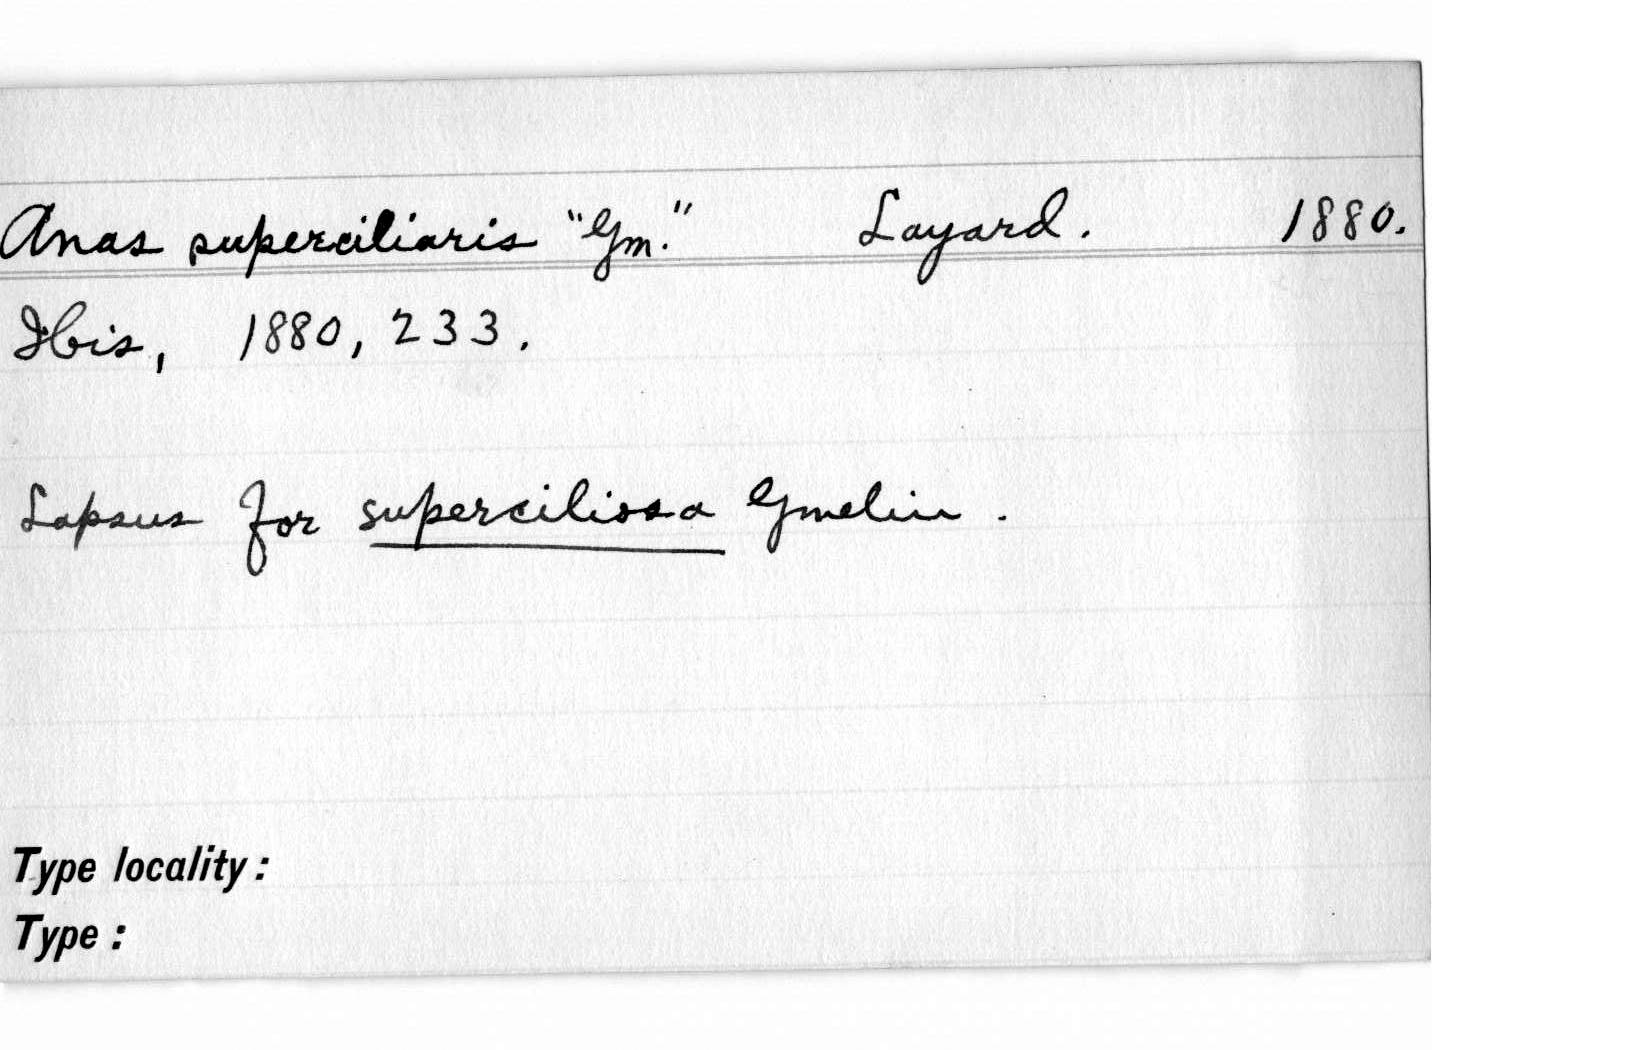 Anas superciliaris "Gm." Layard. 1880.
Ibis, 1880, 233.
Lapsus for superciliosa Gmelin.
Type locality:
Type: